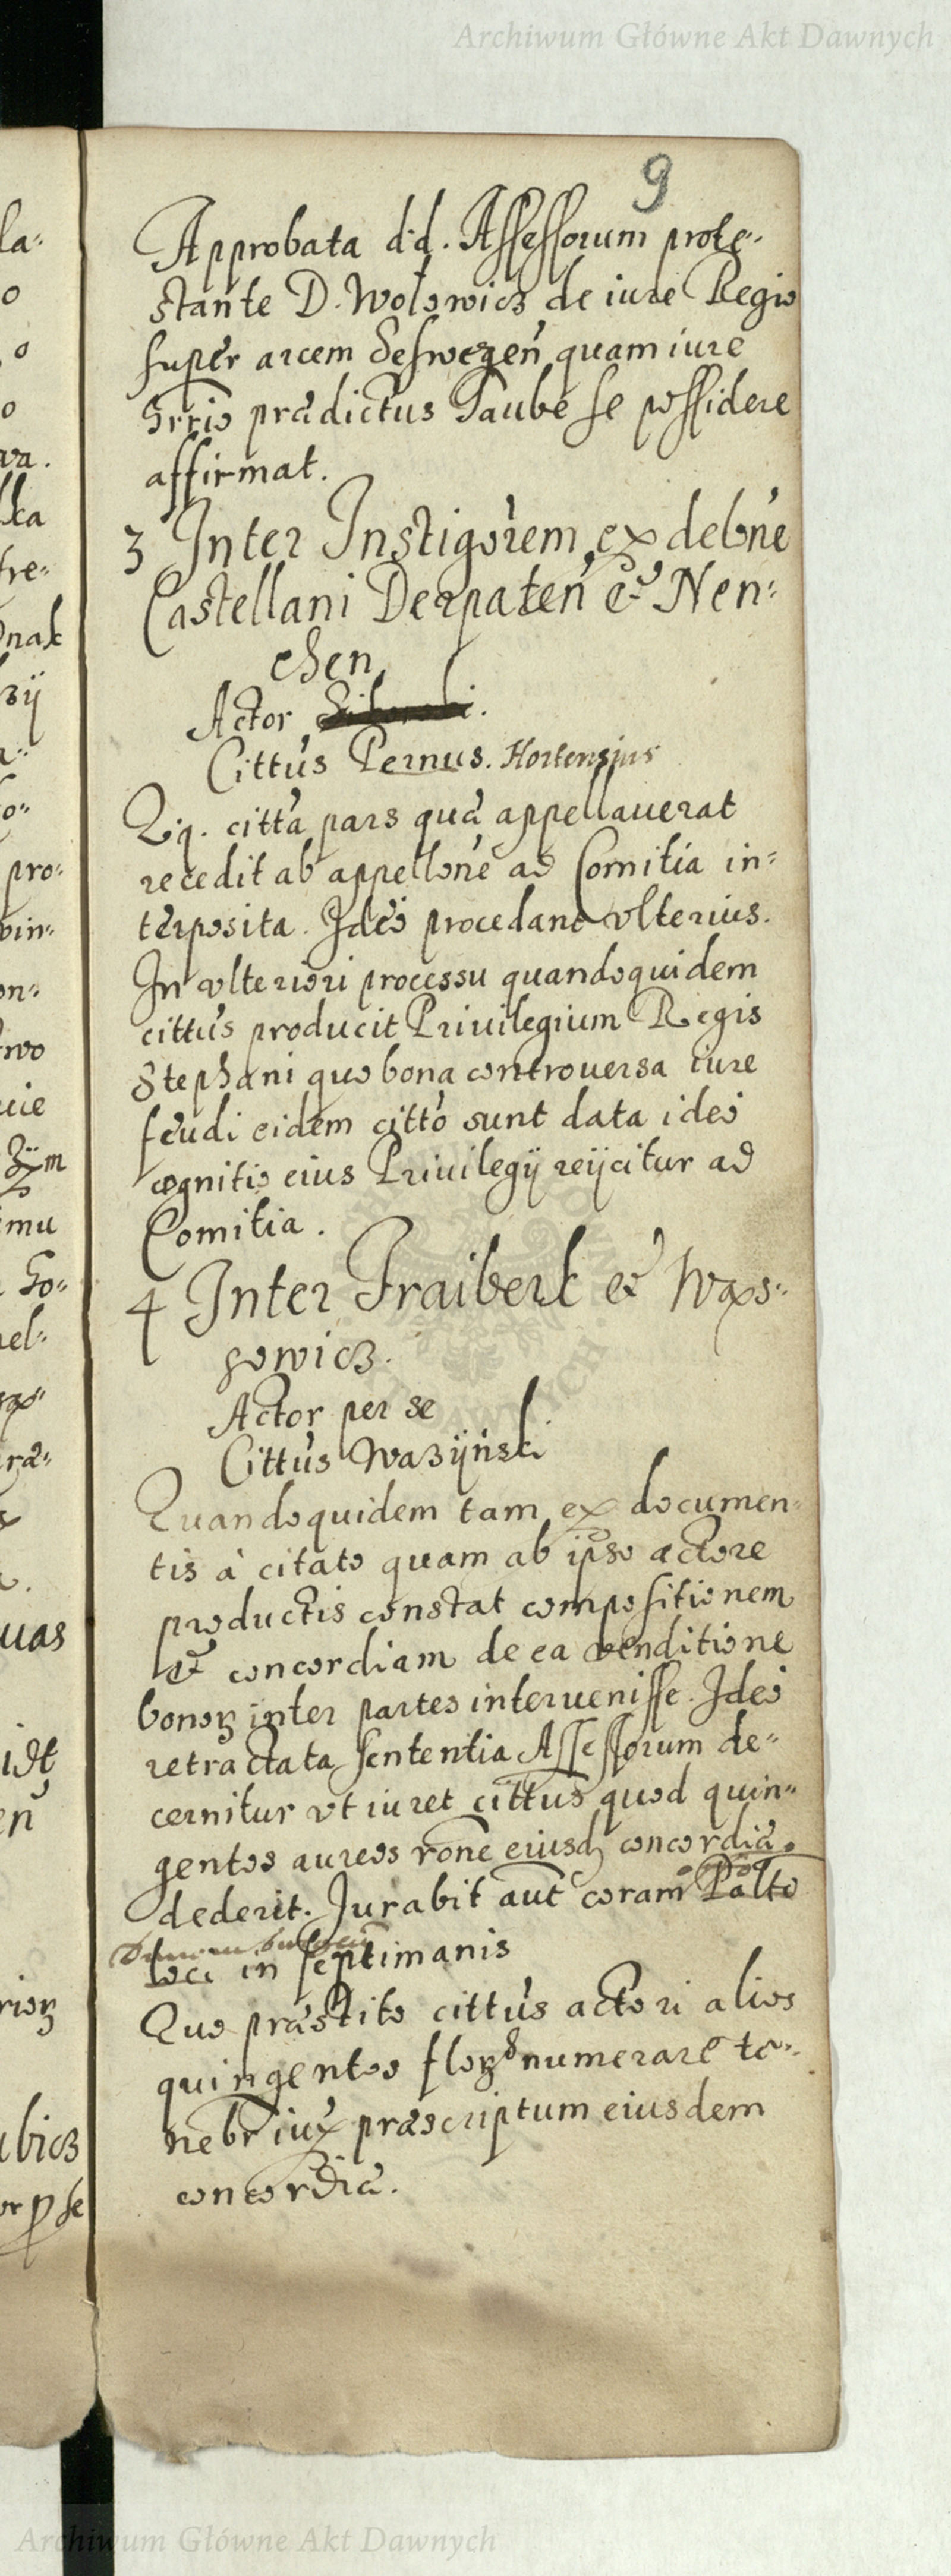 Archiwum Główne Akt Dawnych
9
Approbata d.d. Assessorum prote-
stante D. Wolowicz de iure Regio
super arcem Seswegen quam iure
hrrio prædictus Taube se possidere
affirmat.
3 Inter Instigorem ex delõne
Castellani Derpaten et Nen-
chen
Actor
Cittus Pernus. Hortensius
Qq. citta pars quæ appellauerat
recedit ab appellõne ad Comitia in-
terposita. Ideo procedant vlterius.
In vlteriori processu quandoquidem
cittus producit Priuilegium Regis
Stephani quo bona controuersa iure
feudi eidem citto sunt data ideo
cognitio eius Priuilegij reijcitur ad
Comitia.
4 Inter Fraiberk et Wox-
gowicz.
Actor per se
Cittus Wazÿnski
Quandoquidem tam ex documen-
tis à citato quam ab ipso actore
productis constat compositionem
et concordiam de ea venditione
bonoꝝ inter partes interuenisse. Ideo
retractata sententia Assessorum de-
cernitur vt iuret cittus quod quin-
gentos aureos rõne eiusd concordiæ
dederit. Jurabit aut coram Palto
loci in septimanis
Quo præstito cittus actori alios
quingentos floꝝ numerare te-
nebr iux præscriptum eiusdem
concordiæ.
Archiwum Główne Akt Dawnych